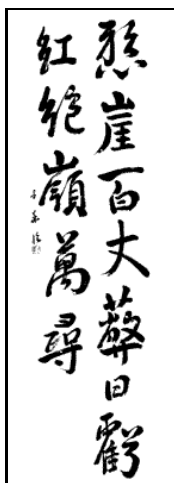 懸崖百丈蔽日虧
紅絶嶺萬尋